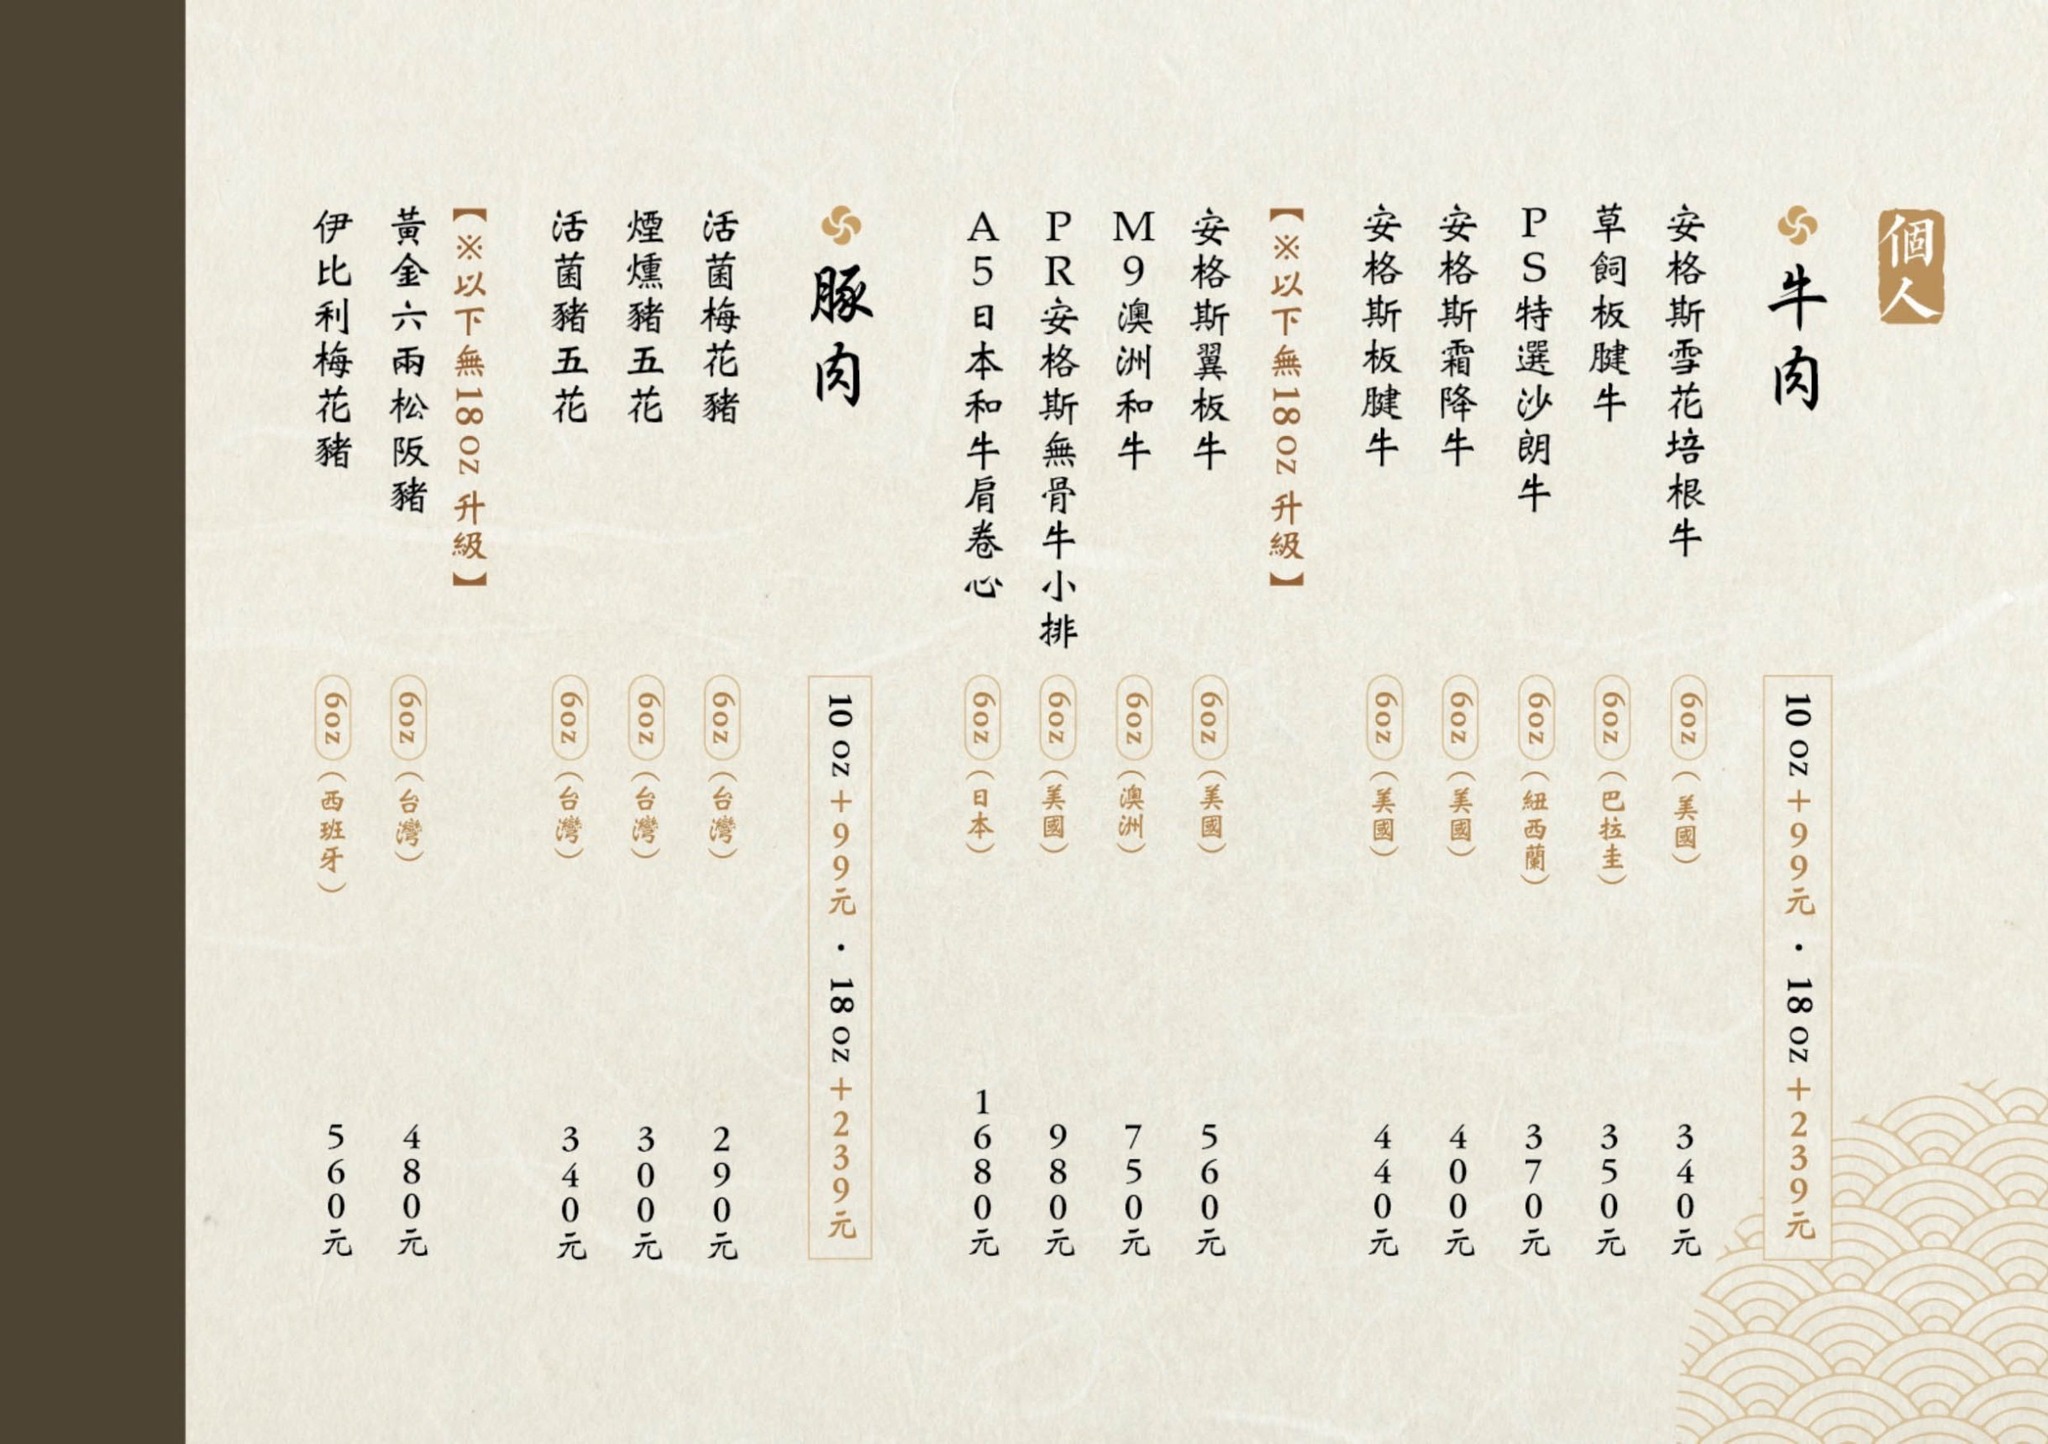 個人
牛肉
10 oz+99元・18 oz+239元
安格斯雪花培根牛 6oz(美國) 340元
草飼板腱牛 6oz(巴拉圭) 350元
PS特選沙朗牛 6oz(紐西蘭) 370元
安格斯霜降牛 6oz(美國) 400元
安格斯板腱牛 6oz(美國) 440元
【※以下無18oz 升級】
安格斯翼板牛 6oz(美國) 560元
M9澳洲和牛 6oz(澳洲) 750元
PR安格斯無骨牛小排 6oz(美國) 980元
A5日本和牛肩卷心 6oz(日本) 1680元
豚肉
10 oz+99元・18 oz+239元
活菌梅花豬 6oz(台灣) 290元
煙燻豬五花 6oz(台灣) 300元
活菌豬五花 6oz(台灣) 340元
【※以下無18oz 升級】
黃金六兩松阪豬 6oz(台灣) 480元
伊比利梅花豬 6oz(西班牙) 560元